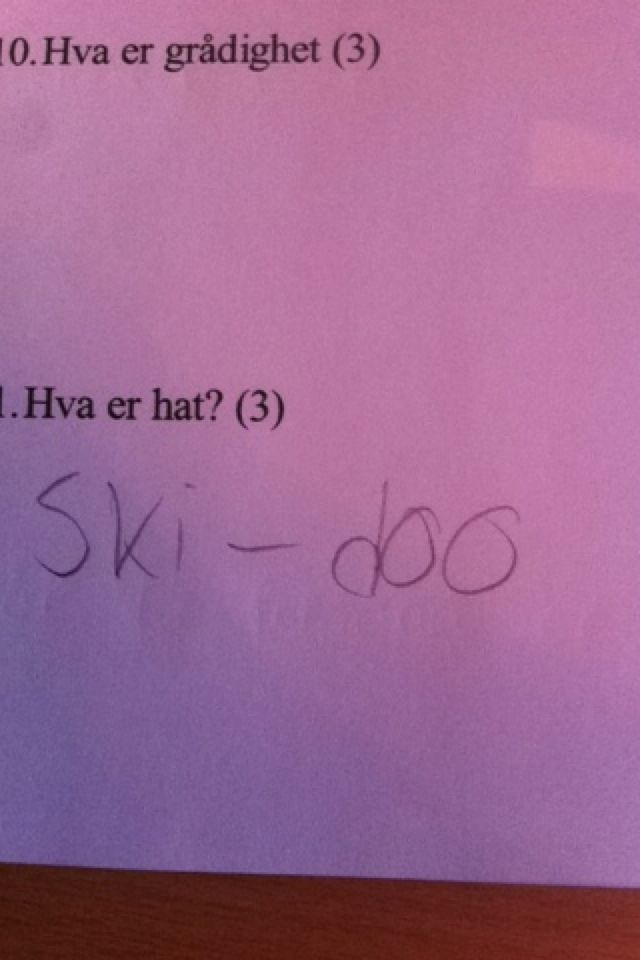 10. Hva er grådighet (3)
1. Hva er hat? (3)
Ski-doo